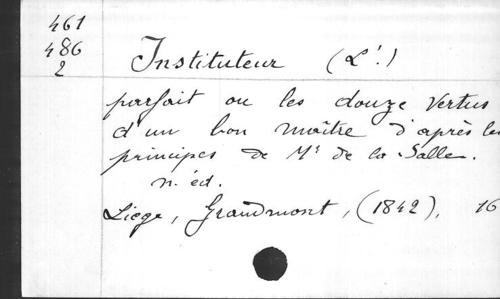 461
486
2
Instituteur (L'.)
parfait ou les douze vertus
d'un bon maître d'après les
principes de Mr de la Salle.
n. éd.
Liège, Grandmont, (1842), 16